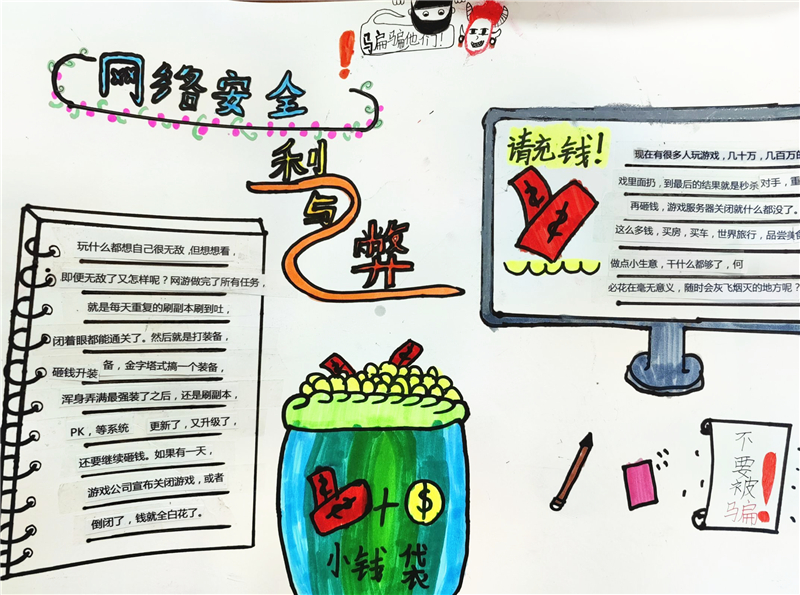 骗骗他们!
网络安全
利与弊
玩什么都想自己很无敌,但想想看,
即便无敌了又怎样呢?网游做完了所有任务,
就是每天重复的刷副本刷到吐,
闭着眼都能通关了。然后就是打装备,
砸钱升装备,金字塔式搞一个装备,
浑身弄满最强装了之后,还是刷副本,
PK,等系统 更新了,又升级了,
还要继续砸钱。如果有一天,
游戏公司宣布关闭游戏,或者
倒闭了,钱就全白花了。
请充钱!
现在有很多人玩游戏,几十万,几百万的
戏里面扔,到最后的结果就是秒杀对手,重
再砸钱,游戏服务器关闭就什么都没了。
这么多钱,买房,买车,世界旅行,品尝美食
做点小生意,干什么都够了,何
必花在毫无意义,随时会灰飞烟灭的地方呢?
$
小钱袋
不要被骗!